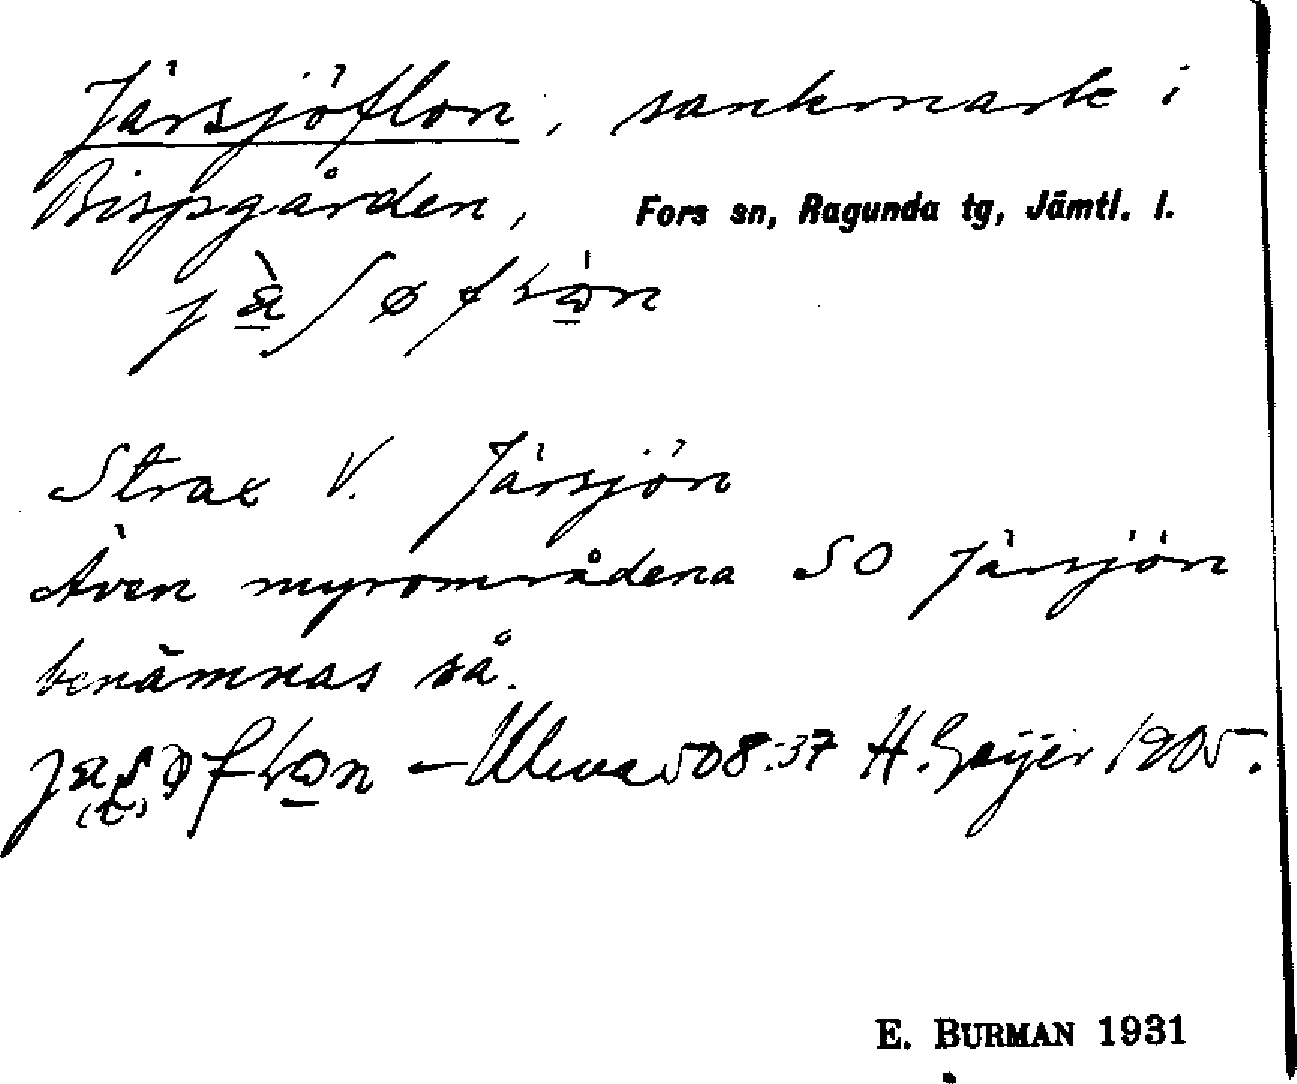 Järsjöflon, sankmark i
Bispgården, Fors sn, Ragunda tg, Jämtl. l.
Strax V. Järsjön
Även myrområdena SO Järsjön
benämnas så.
508:37 H. Geijer 1905.
E. BURMAN 1931